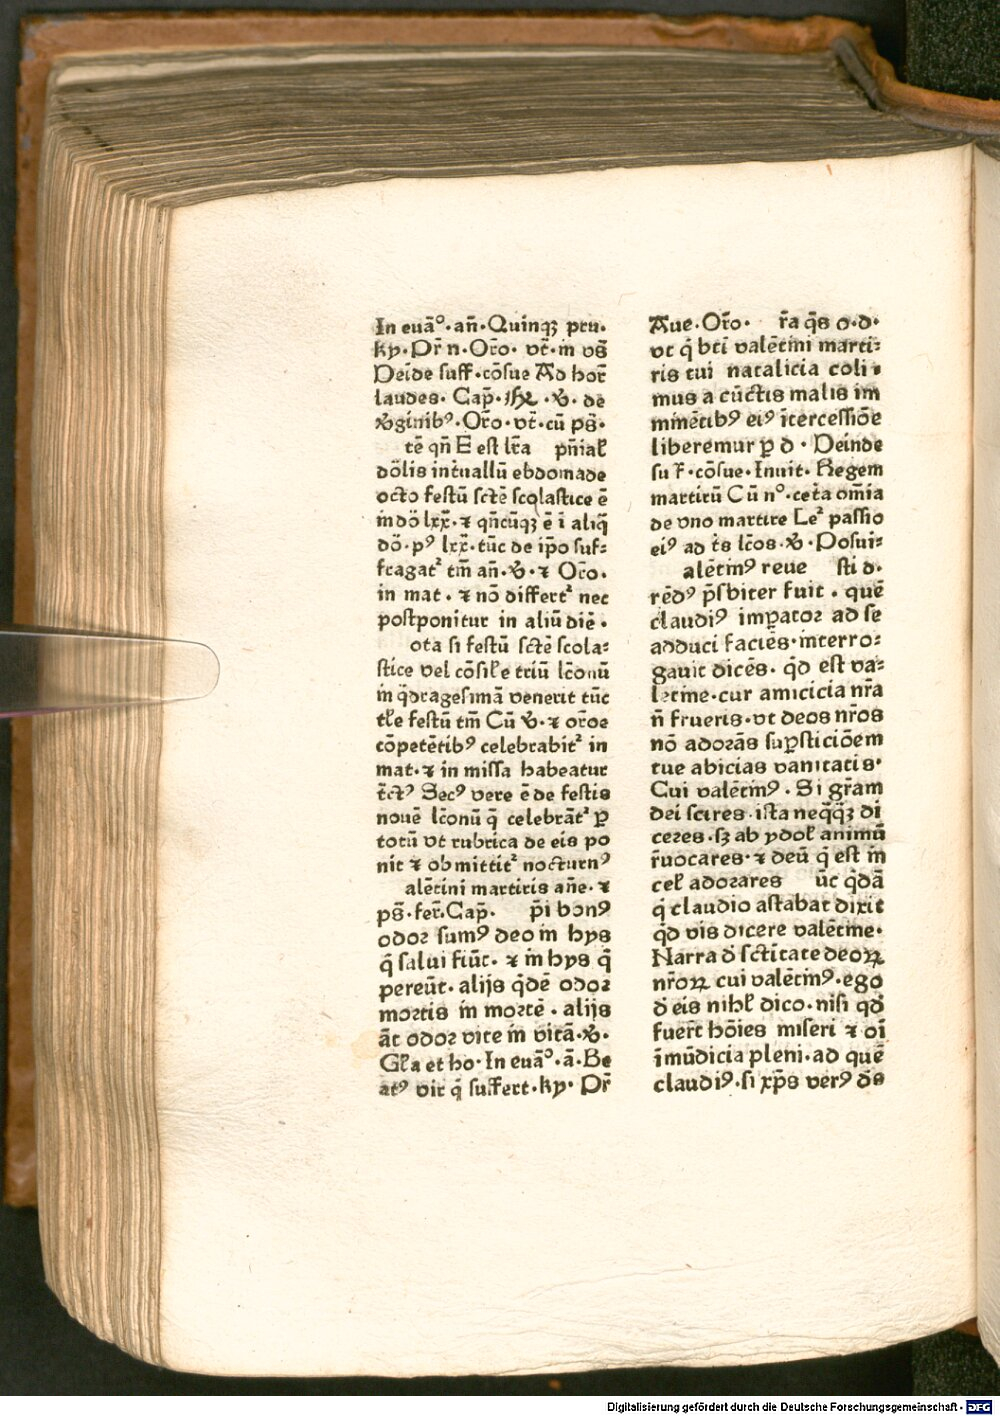 In euãº·añ·Quinqꝫ pru·
ky·Pr̃ n·Or̃o· vt̃·in vs̃
Deĩde suff·cõsue Ad hor̃
laudes· Cap̃·
xginibꝰ·Or̃o·vt̃·cũ ps̃·
tẽ qñ E est lr̃a pñial̃
dõlis int̃uallũ ebdomade
octo festũ sctẽ scolastice ẽ
in dõ lxx̃·⁊ qñcũqꝫ ẽ ĩ aliq̃
dõ·pꝰ lxx̃·tũc de ip̃o suf⸗
fragat᷑ tm̃ añ·℣·⁊ Or̃o·
in mat·⁊ nõ differt᷑ nec
postponitur in aliũ diẽ·
ota si festũ sctẽ scola⸗
stice vel cõsil̃e triũ lc̃onũ
in q̃dragesimã venerit tũc
tl̃e festũ tm̃ Cũ ℣·⁊ or̃oe
cõpetẽtibꝰ celebrabit᷑ in
mat·⁊ in missa habeatur
Secꝰ vere ẽ de festis
nouẽ lc̃onũ q̃ celebrãt᷑ ꝑ
totũ vt rubrica de eis po
nit ⁊ ob mittit᷑ nocturnꝰ
alẽtini martiris añe·⁊
ps̃·fer̃·Cap̃· p̃i bonꝰ
odoꝛ sumꝰ deo in hys
q̃ salui fiũt·⁊ in hys q̃
pereũt·alijs q̃dẽ odoꝛ
moꝛtis in moꝛtẽ·alijs
ãt odoꝛ vite in vitã·℣·
Gl̃a et ho·In euãº·ã·Be
atꝰ vir q̃ suffert·ky·Pr̃
Aue·Or̃o· r̃a q̃s o·d·
vt q̃ bti̇ valẽtini marti⸗
ris tui natalicia coli⸗
mus a cũctis malis im
minẽtibꝰ eiꝰ ĩtercessiõe
liberemur ꝑ d·Deinde
su r̃·cõsue·Inuit·Regem
martirũ Cũ nº·cet̃a om̃ia
de vno martire Le᷑ passio
eiꝰ ad t̃s lc̃os·℣·Posui⸗
alẽtinꝰ reue sti d·
rẽdꝰ p̃sbiter fuit·quẽ
claudiꝰ imp̃atoꝛ ad se
adduci faciẽs·interro⸗
gauit dicẽs·q̃d est va⸗
letine·cur amicicia nr̃a
ñ frueris·vt deos nr̃os
nõ adoꝛãs sup̱sticiõem
tue abicias vanitatis·
Cui valẽtinꝰ·Si gr̃am
dei scires·ista neq̃q̃ꝫ di
ceres·sꝫ ab ydol̃ animũ
r̃uocares·⁊ deũ q̃ est in
cel̃ adoꝛares ũc q̃dã
q̃ claudio astabat dixit
q̃d vis dicere valẽtine·
Narra d̃ sctĩtate deoꝝ
nr̃oꝝ cui valẽtinꝰ·ego
d̃ eis nihl̃ dico·nisi q̃d
fuer̃t hõies miseri ⁊ oĩ
ĩmũdicia pleni·ad quẽ
claudiꝰ·si xp̃s verꝰ d̃s
Digitalisierung gefördert durch die Deutsche Forschungsgemeinschaft - DFG